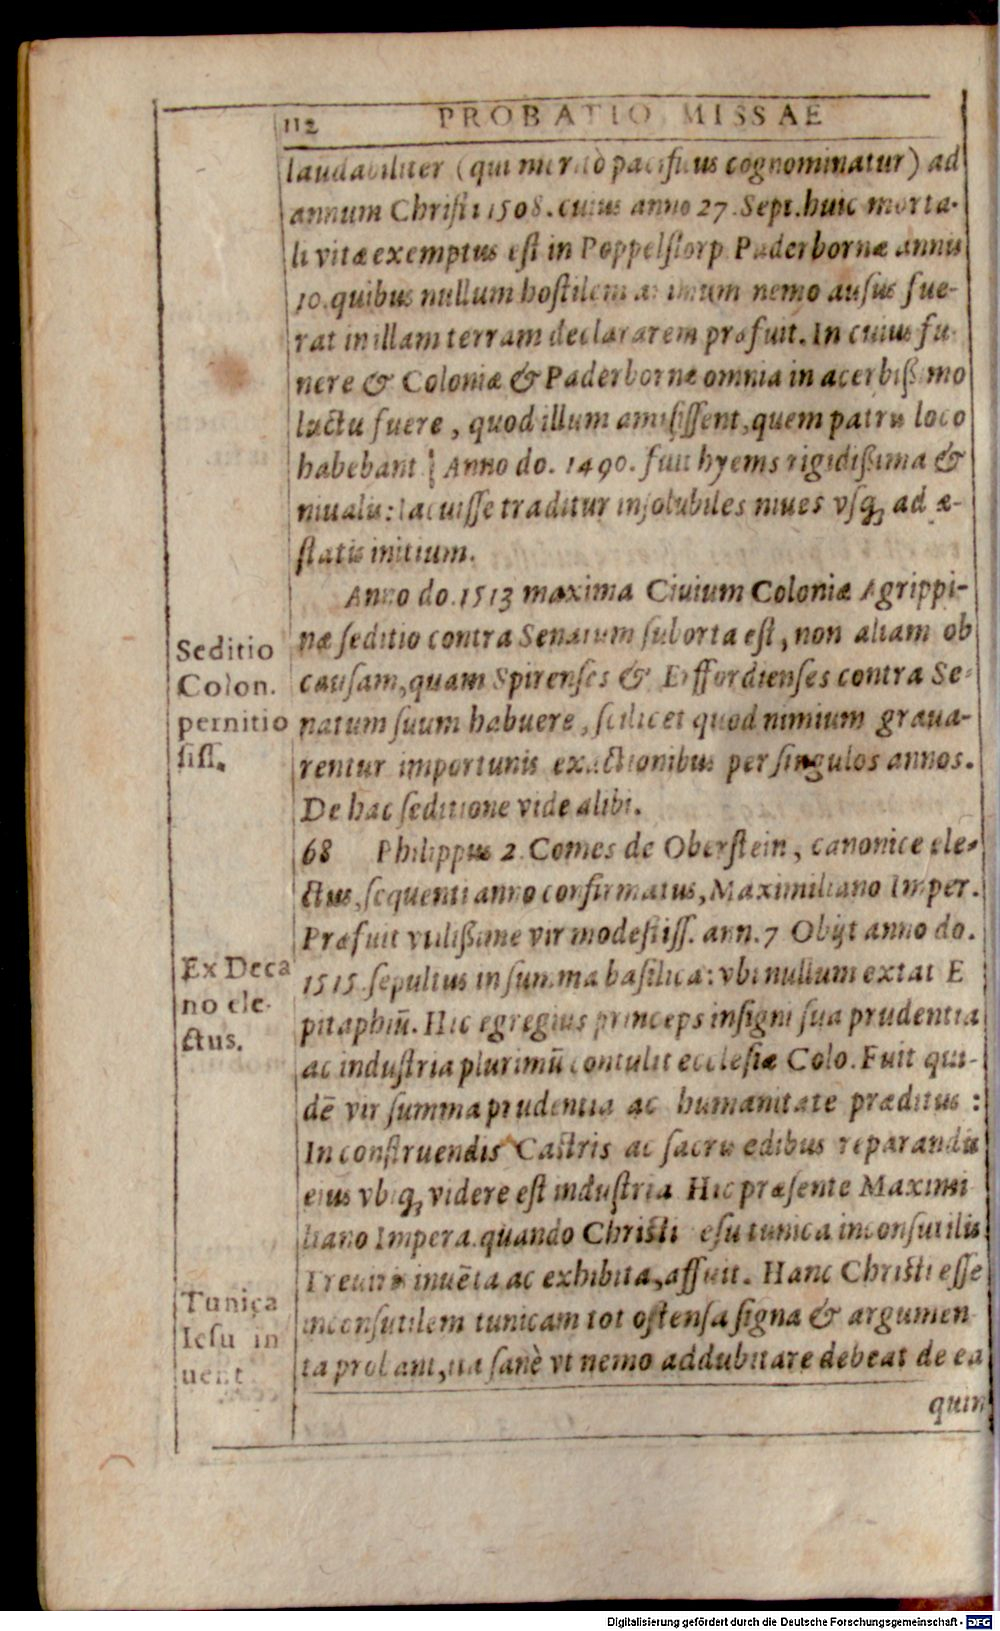 112 PROBATIO MISSAE
laudabiliter (qui meritò pacificus cognominatur) ad
annum Chriſti 1508. cuius anno 27. Sept. huic morta-
li vitæ exemptus eſt in Poppelſtorp Paderbornæ annis
10. quibus nullum hoſtilem animum nemo auſus fue-
rat in illam terram declararem præfuit. In cuius fu-
nere & Coloniæ & Paderbornæ omnia in acerbißimo
luctu fuere, quod illum amiſiſſent, quem patris loco
habebant Anno do. 1490. fuit hyems rigidißima &
niualis: iacuiſſe traditur inſolubiles niues vſq; ad æ-
ſtatis initium.
Anno do. 1513 maxima Ciuium Coloniæ Agrippi-
næ ſeditio contra Senatum ſuborta eſt, non aliam ob
cauſam, quam Spirenſes & Erffordienſes contra Se-
natum ſuum habuere, ſcilicet quod nimium graua-
rentur importunis exactionibus per ſingulos annos.
De hac ſeditione vide alibi.
Seditio
Colon.
pernitio
ſiſſ.
68 Philippus 2. Comes de Oberſtein, canonice ele-
ctus, ſequenti anno confirmatus, Maximiliano Imper.
Præfuit vtilißime vir modeſtiſſ. ann. 7 Obijt anno do.
1515. ſepultus in ſumma baſilica: vbi nullum extat E
pitaphiū. Hic egregius princeps inſigni ſua prudentia
ac induſtria plurimū contulit eccleſiæ Colo. Fuit qui-
dē vir ſumma prudentia ac humanitate præditus:
In conſtruendis Caſtris ac ſacris edibus reparandis
eius vbiq; videre eſt induſtria Hic præſente Maximi
liano Impera. quando Chriſti Ieſu tunica inconſutilis
Treuiris inuēta ac exhibita, affuit. Hanc Chriſti eſſe
inconſutilem tunicam tot oſtenſa ſigna & argumen
ta probant, ita ſanè vt nemo addubitare debeat de ea
quin
Ex Deca
no ele-
ctus.
Tunica
Ieſu in
uent
Digitalisierung gefördert durch die Deutsche Forschungsgemeinschaft - DFG